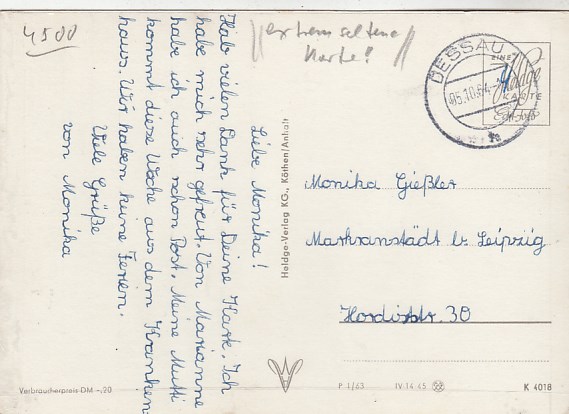 4500
//extrem seltene
Karte!//
DESSAU 1
05.10.64
EINE
Heldge
KARTE
Echt Foto
Liebe Monika!
Hab vielen Dank für Deine Karte. Ich
habe mich sehr gefreut. Von Marianne
habe ich auch schon Post. Meine Mutti
kommt diese Woche aus dem Kranken-
haus. Wir haben keine Ferien.
Viele Grüße
von Monika
Heldge-Verlag KG., Köthen/Anhalt
Monika Gießler
Markranstädt b. Leipzig
30
Verbraucherpreis DM -,20
P 1/63 IV 14 45
K 4018